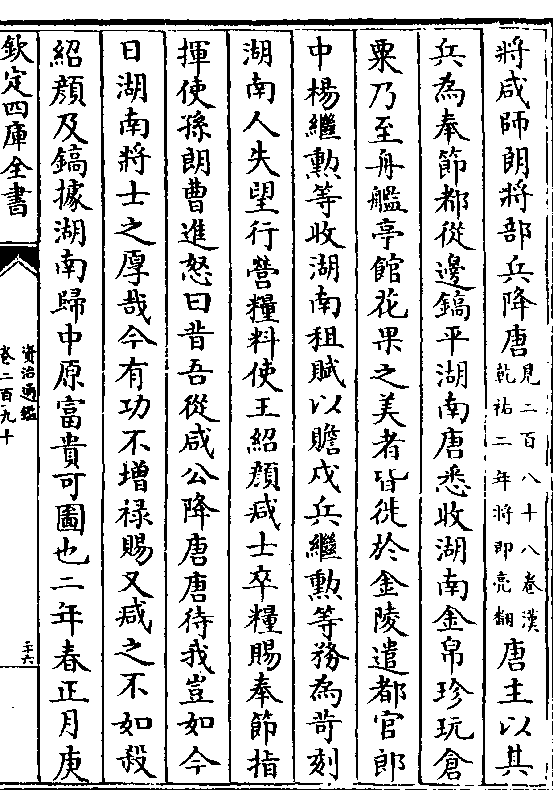 將咸師朗將部兵降唐見二百八十八卷漢乾祐二年將即亮翻唐主以其
兵為奉節都從邊鎬平湖南唐悉收湖南金帛珍玩倉
粟乃至舟艦亭館花果之美者皆徙於金陵遣都官郎
中楊繼勳等收湖南租賦以贍戍兵繼勳等務為苛刻
湖南人失望行營糧料使王紹顔減士卒糧賜奉節指
揮使孫朗曹進怒曰昔吾從咸公降唐唐待我豈如今
日湖南將士之厚哉今有功不增禄賜又減之不如殺
紹顔及鎬據湖南歸中原富貴可圖也二年春正月庚
欽定四庫全書
資治通鑑
卷二百九十